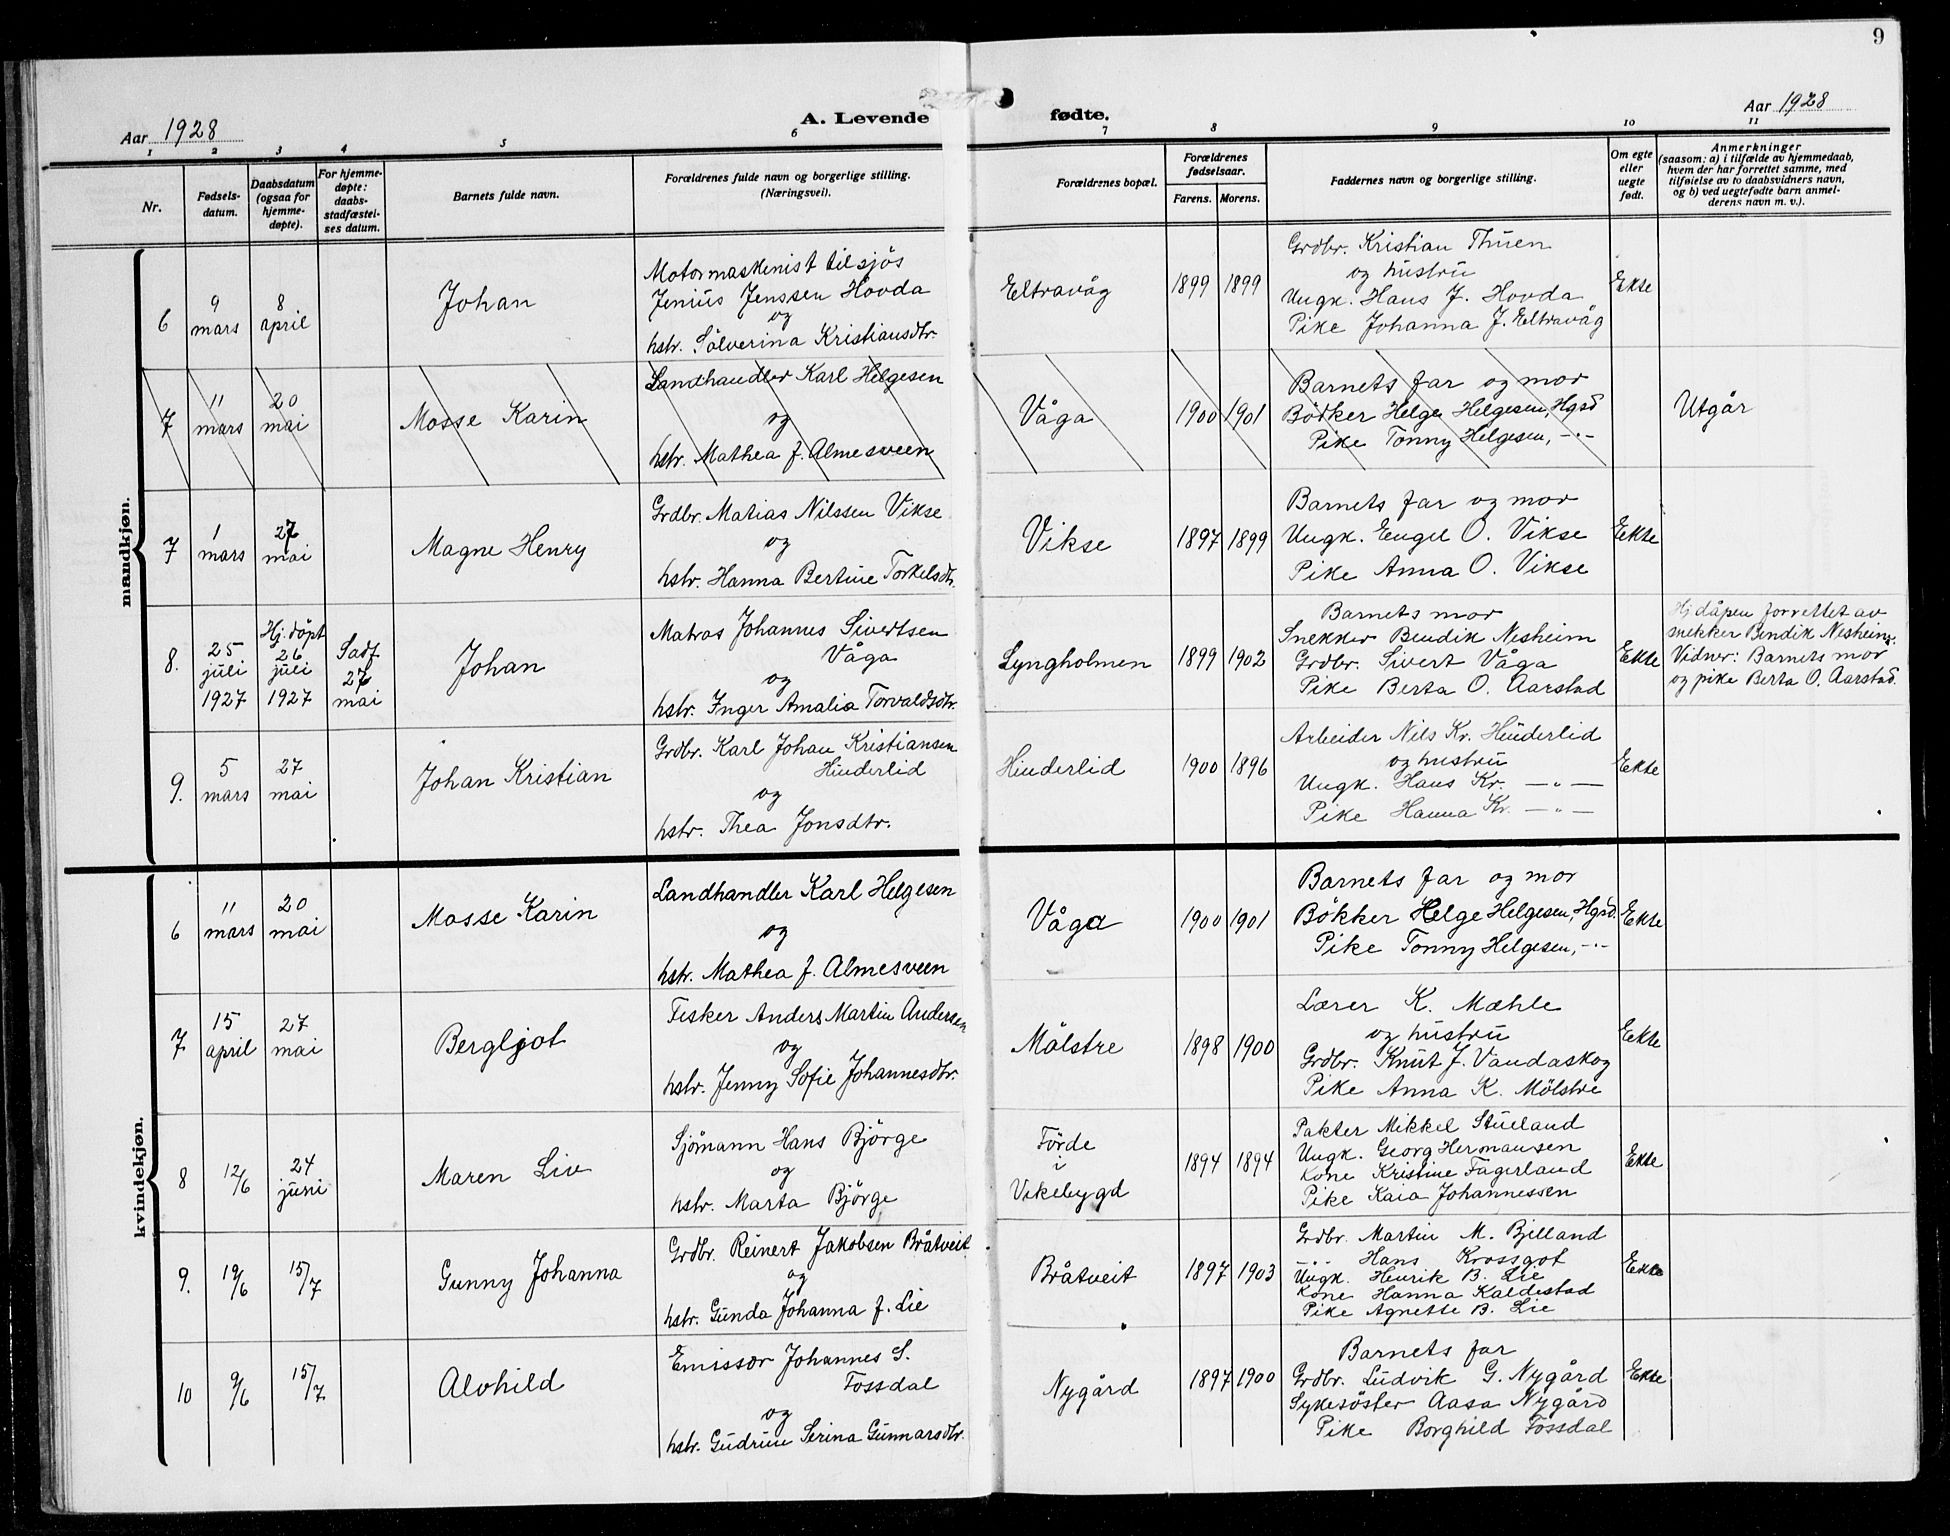 9
Aar 1928
A. Levende fødte.
Aar 1928
1 2 3 4 5 6 7 8 9 10 11
Nr.
Fødsels-
datum.
Daabsdatum
(ogsaa for
hjemme-
døpte).
For hjemme-
døpte:
daabs-
stadfæstel-
ses datum.
Barnets fulde navn.
Forældrenes fulde navn og borgerlige stilling.
(Næringsvei).
Forældrenes bopæl.
Forældrenes
fødselsaar.
Farens. Morens.
Faddernes navn og borgerlige stilling.
Om egte
eller
uegte
født.
Anmerkninger
(saasom: a) i tilfælde av hjemmedaab,
hvem der har forrettet samme, med
tilføielse av to daabsvidners navn,
og b) ved uegtefødte barn anmel-
derens navn m. v.).
mandkjøn.
6
9
mars
8
april
Johan
Motormaskinist til sjøs
Jenius Jenssen Hovda
og
hstr. Sølverina Kristiansdtr.
Eltravåg
1899 1899
Grdbr. Kristian Thuen
og hustru
Ungk. Hans J. Hovda
Pike Johanna J. Eltravåg
Ekte
7
11
mars
20
mai
Mosse Karin
Landhandler Karl Helgesen
og
hstr. Mathea f. Almesveen
Våga
1900 1901
Barnets far og mor
Bödker Helge Helgesen, Hgsd
Pike Tonny Helgesen, -"-
Utgår
7
1
mars
27
mai
Magne Henry
Grdbr. Matias Nilssen Vikse
og
hstr. Hanna Bertine Torkelsdtr.
Vikse
1897 1899
Barnets far og mor
Ungk. Engel O. Vikse
Pike Anna O. Vikse
Ekte
8.
25
juli
1927
Hj.döpt
26
juli
1927
Sadf
27
mai
Johan
Matros Johannes Sivertsen
Våga
og
hstr. Inger Amalia Torvaldsdtr.
Lyngholmen
1899 1902
Barnets mor
Snekker Bendik Nesheim
Grdbr. Sivert Våga
Pike Berta O. Aarstad
Ekte
Hj.dåpen forrettet av
snekker Bendik Nesheim.
Vidner: Barnets mor
og pike Berta O. Aarstad.
9.
5
mars
27
mai
Johan Kristian
Grdbr. Karl Johan Kristiansen
Hinderlid
og
hstr. Thea Jonsdtr.
Hinderlid
1900 1896
Arbeider Nils Kr. Hinderlid
og hustru
Ungk. Hans Kr. — " —
Pike Hanna Kr. — " —
Ekte
kvindekjøn.
6
11
mars
20
mai
Mosse Karin
Landhandler Karl Helgesen
og
hstr. Mathea f. Almesveen
Våga
1900 1901
Barnets far og mor
Bökker Helge Helgesen, Hgsd.
Pike Tonny Helgesen, -"-
Ekte
7
15
april
27
mai
Bergljot
Fisker Anders Martin Andersen
og
hstr. Jenny Sofie Johannesdtr.
Mölstre
1898 1900
Lærer K. Mæhle
og hustru
Grdbr. Knut J. Vandaskog
Pike Anna K. Mölstre
Ekte
8
12/6
24
juni
Maren Liv
Sjömann Hans Björge
og
hstr. Marta Björge
Förde
i
Vikebygd
1894 1894
Pakter Mikkel Stueland
Ungk. Georg Hermansen
Kone Kristine Fagerland
Pike Kaia Johannessen
Ekte
9.
19/6
15/7
Gunny Johanna
Grdbr. Reinert Jakobsen Bråtveit
og
hstr. Gunda Johanna f. Lie
Bråtveit
1897 1903
Grdbr. Martin M. Bjelland
-"- Hans Krossgot
Ungk. Henrik B. Lie
Kone Hanna Kaldestad
Pike Agnette B. Lie
Ekte
10
9/6
15/7
Alvhild
Emissær Johannes S.
Fossdal
og
hstr. Gudrun Serina Gunnarsdtr.
Nygård
1897 1900
Barnets far
Grdbr. Ludvik G. Nygård
Sykesöster Aasa Nygård
Pike Borghild Fossdal
Ekte